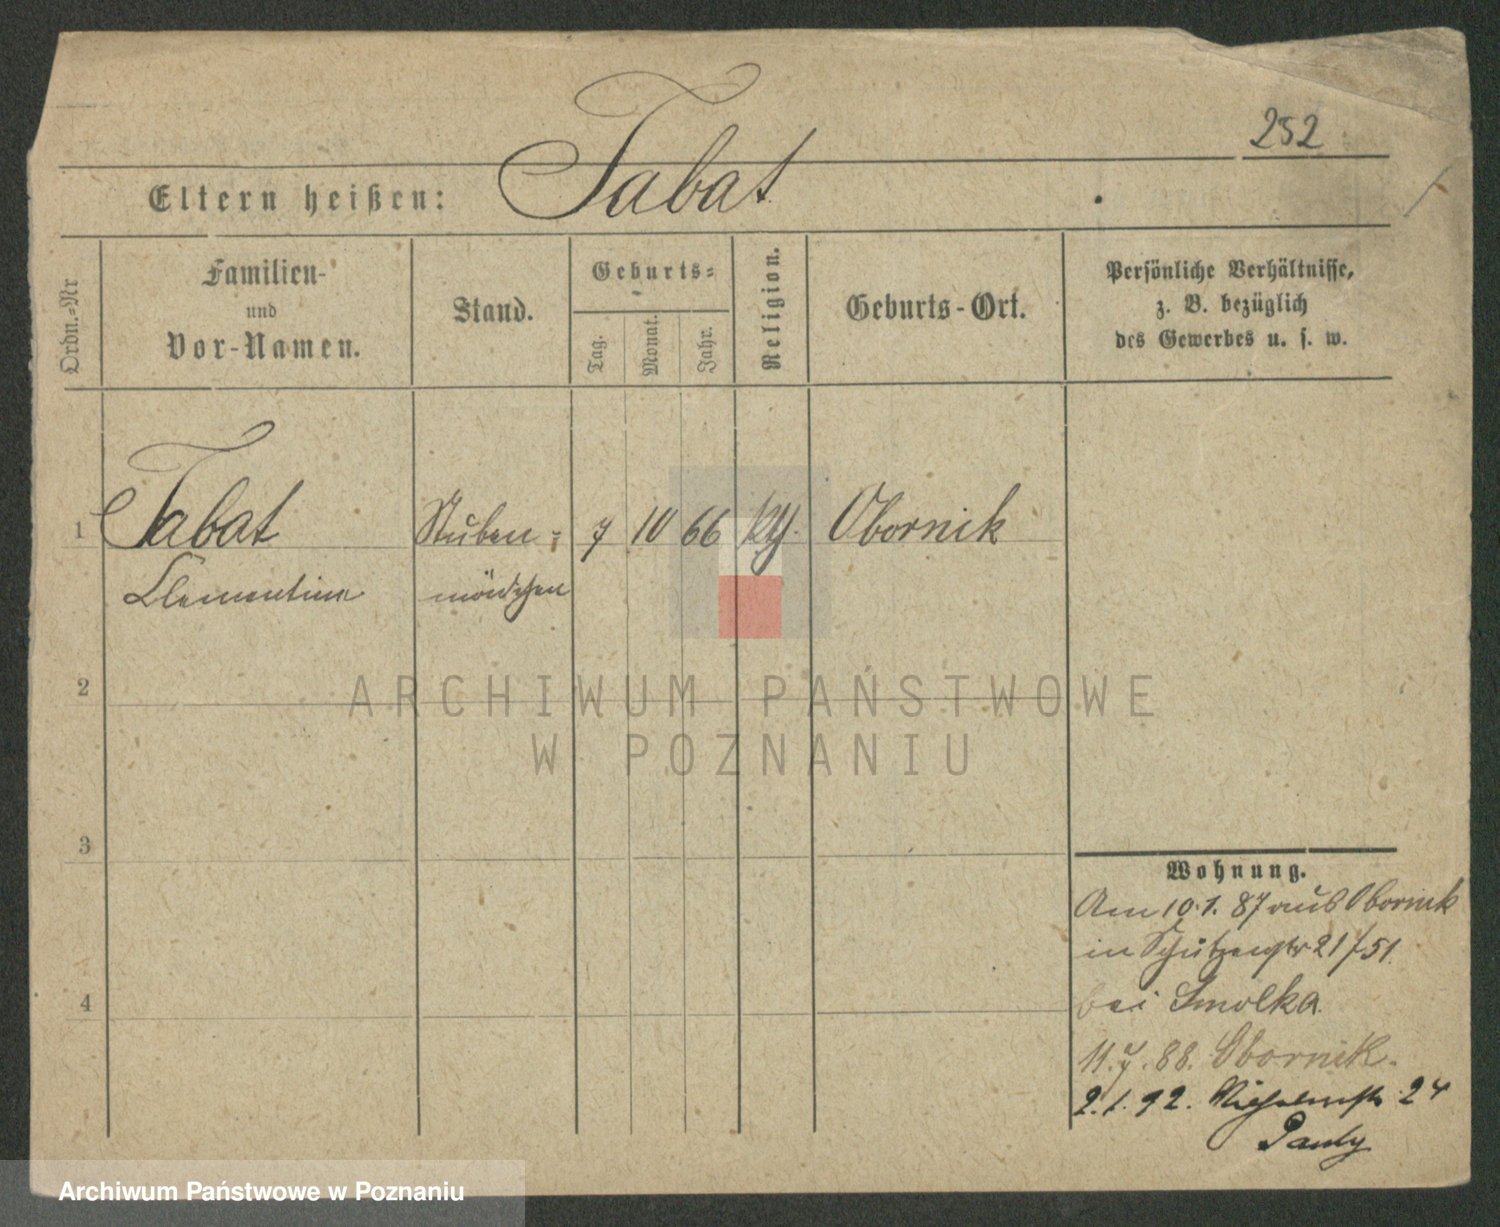 252
Eltern heißen: Tabat
Ordn.-Nr
Familien-
und
Vor-Namen.
Stand.
Geburts-
Tag.
Monat.
Jahr.
Religion.
Geburts-Ort.
Persönliche Verhältnisse,
z. B. bezüglich
des Gewerbes u. s. w.
1 Tabat Stuben= 7 10 66 kth. Obornik
Clementine mädchen
2
3
4
Wohnung.
Am 10.1.87 aus Obornik
in Schützenstr 21/51.
bei Smolka
11.7.88. Obornik.
2.1.92. Wilhelmstr 24
Pauly
ARCHIWUM PAŃSTWOWE
W POZNANIU
Archiwum Państwowe w Poznaniu